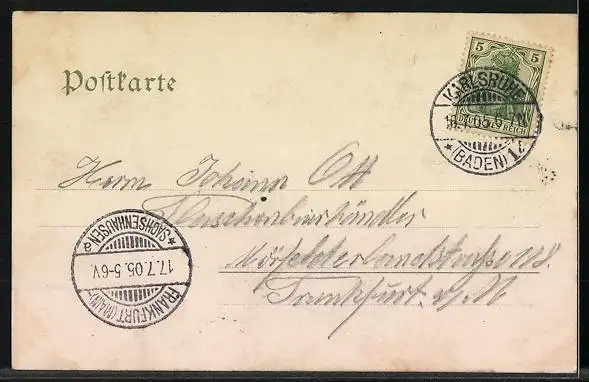 Postkarte
5
DEUTSCHES REICH
KARLSRUHE
(BADEN) 1
Herrn Johann Ott
Flaschenbierhändler
Mörfelderlandstrasse 118.
Frankfurt a/M
*SACHSENHAUSEN* a
17.7.05.5-6V.
FRANKFURT (MAIN)